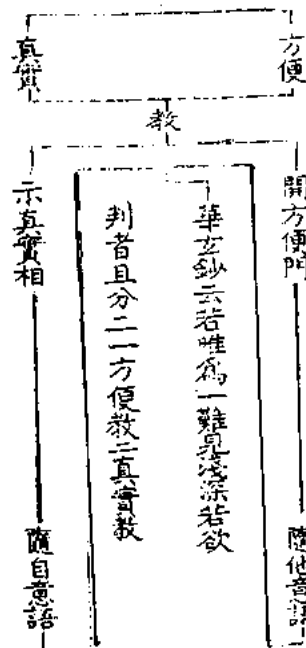 方便
真實
教
開方便門
隨他意語
華玄鈔云若唯為一難見淺深若欲
判者且分二一方便教二真實教
示真實相
隨自意語